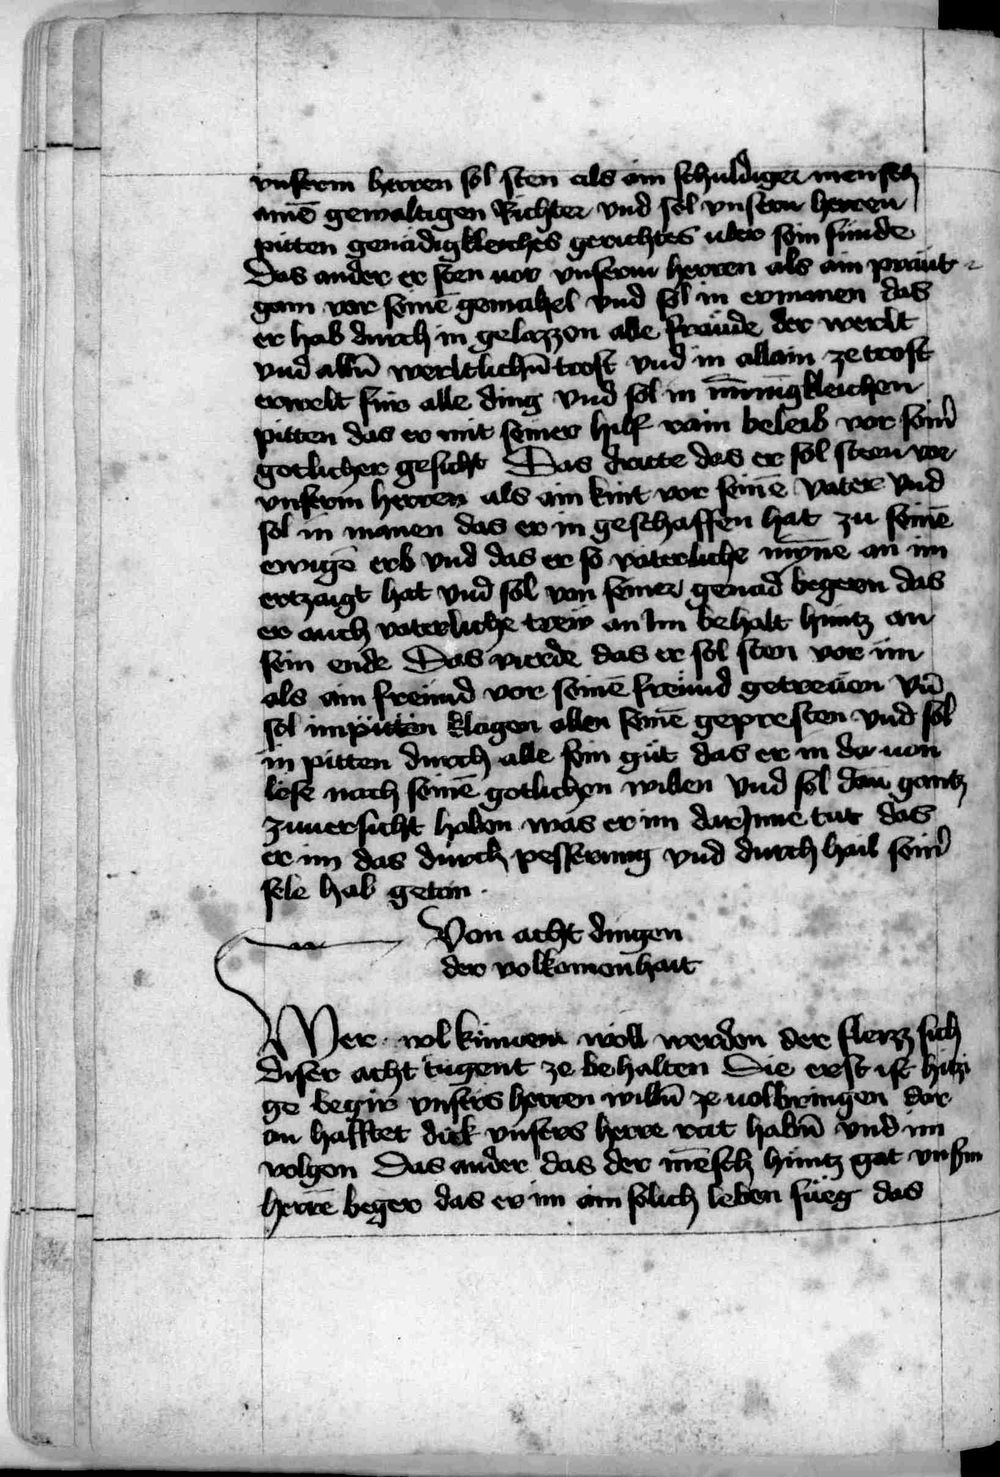 vnserm herren sol sten als ain schuldiger mensch
ainē gewaltigen Richter vnd sol vnsern herren
pitten genadigkleiches gerichtes uber sein sunde
Das ander er sten uor vnserm herren als ain präut
gam vor seinē gemahel vnd sol in ermanen das
er hab durch in gelazzen alle fräude der werlt
vnd alln̄ werltlichn̄ trost vnd in allain ze trost
erwelt fur alle ding vnd sol in innigkleichen
pitten das er mit seiner hilf rain beleib vor sein̄
gotlicher gesicht Das dritte das er sol sten vor
vnserm herren als ain kint vor seinē vater vnd
sol in manen das er in geschaffen hat zu seinē
ewigē erb vnd das er so vaterliche mynne an im
ertzaigt hat vnd sol von seiner genad begern das
er auch vaterliche trew an Im behalt huntz an
sein ende Das vierde das er sol sten vor im
als ain freund vor seinē freund getreuen vn̄
sol im klagen allen seinē gepresten vnd sol
in pitten durch alle sein güt das er in da uon
löse nach seinē gotlichen willen vnd sol dan gantz
zuuersicht haben was er im dar Inne tut das
er im das durch pesserung vnd durch hail sein̄
sele hab getan .
Von acht dingen
der volkomenhait
Wer volkumen wöll werden der fleizz sich
diser acht tugent ze behalten Die erst ist hitzi
ge begir vnsers herren willn̄ ze uolbringen dar
an hafftet dick vnsers herre rat habn̄ vnd im
volgen Das ander das der mēsch huntz got vnserm
herrē beger das er im ain solich leben füeg das